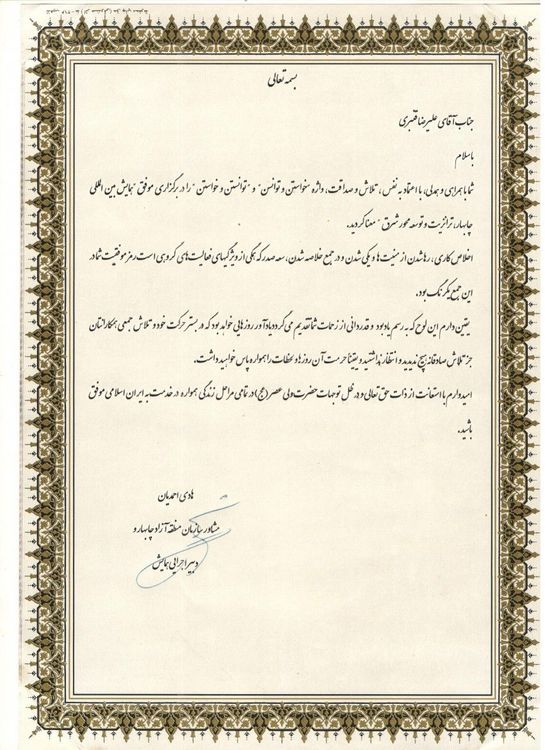 بسمه تعالی
جناب آقای علیرضا قنبری
با سلام
شما با همراهی و همدلی، با اعتماد به نفس، تلاش و صداقت، واژه "خواستن و توانستن" و "توانستن و خواستن" را در برگزاری موفق "همایش بین المللی
چابهار، ترانزیت و توسعه محور شرق" معنا کردید.
اخلاص کاری، رها شدن از منیت ها و یکی شدن و در جمع خلاصه شدن، سعه صدر که همگی از ویژگیهای فعالیت های گروهی است رمز موفقیت شما در
این جمع یکرنگ بود.
یقین دارم این لوح که به رسم یادبود و قدردانی از زحمات شما تقدیم می گردد یادآور روزهایی خواهد بود که در بستر حرکت خود و تلاش جمعی همکارانتان
جز تلاش صادقانه هیچ ندیدید و انتظار نداشتید و یقینا حرمت آن روزها و لحظات را همواره پاس خواهید داشت.
امیدوارم با استعانت از ذات حق تعالی و در ظل توجهات حضرت ولی عصر (عج) در تمامی مراحل زندگی همواره در خدمت به ایران اسلامی موفق
باشید.
هادی احمدیان
مشاور سازمان منطقه آزاد چابهار و
دبیر اجرایی همایش